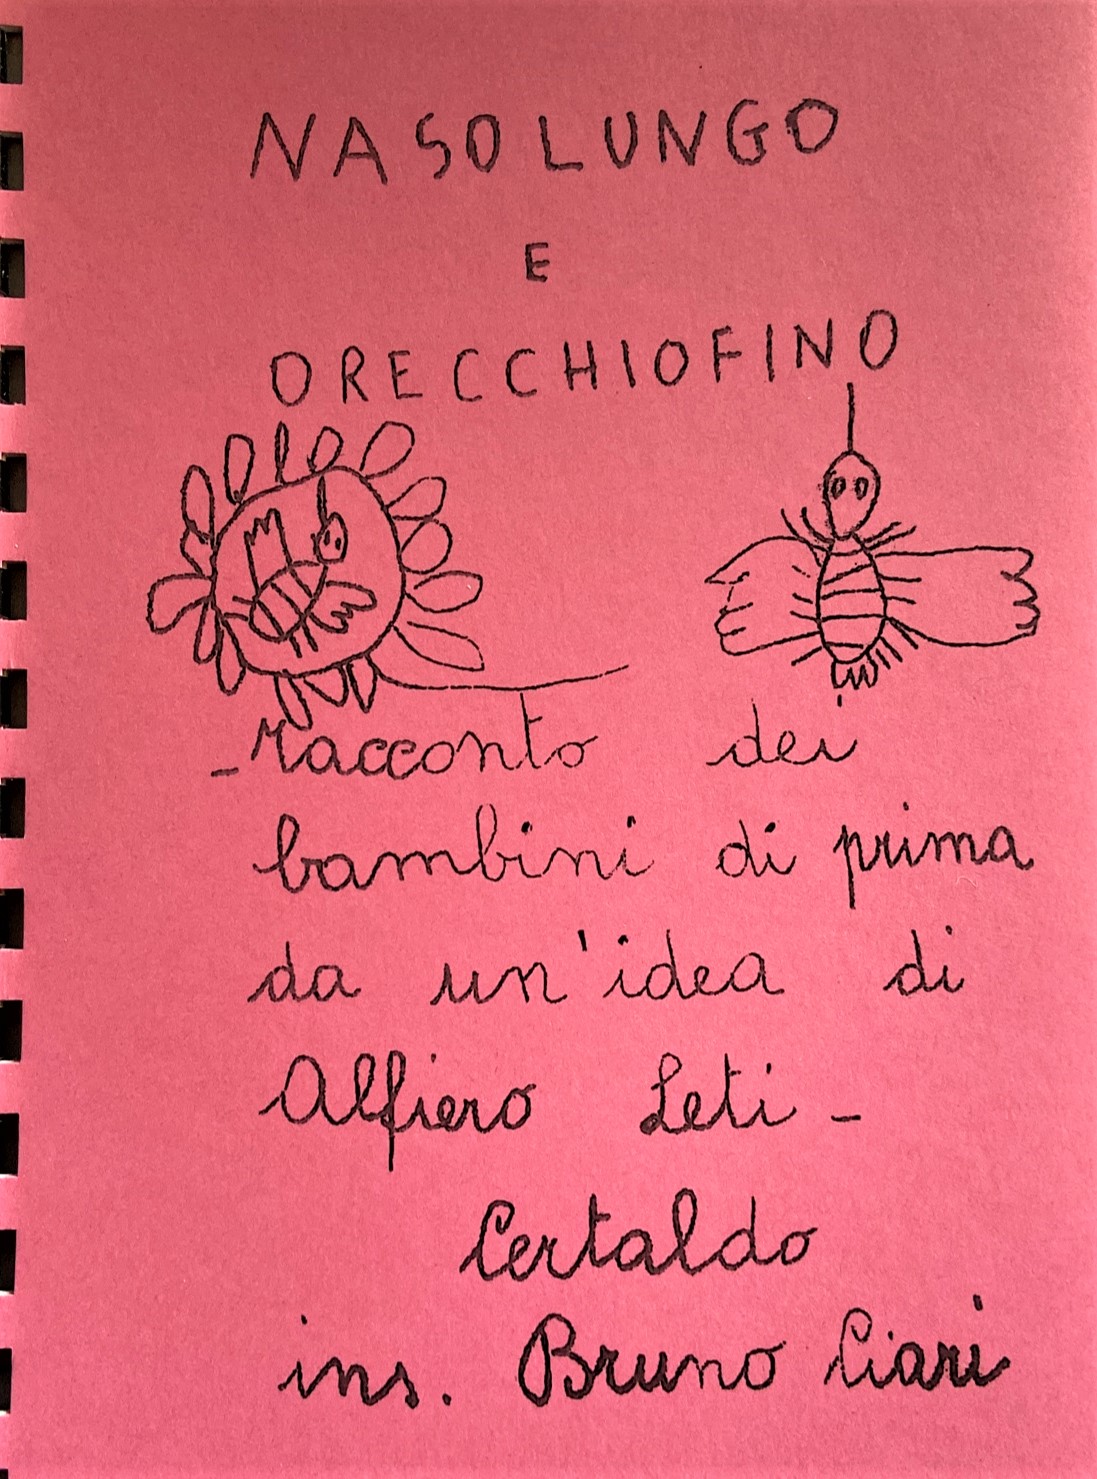 NASOLUNGO
E
ORECCHIOFINO
- racconto dei
bambini di prima
da un'idea di
Alfiero Leti -
Certaldo
ins. Bruno Ciari